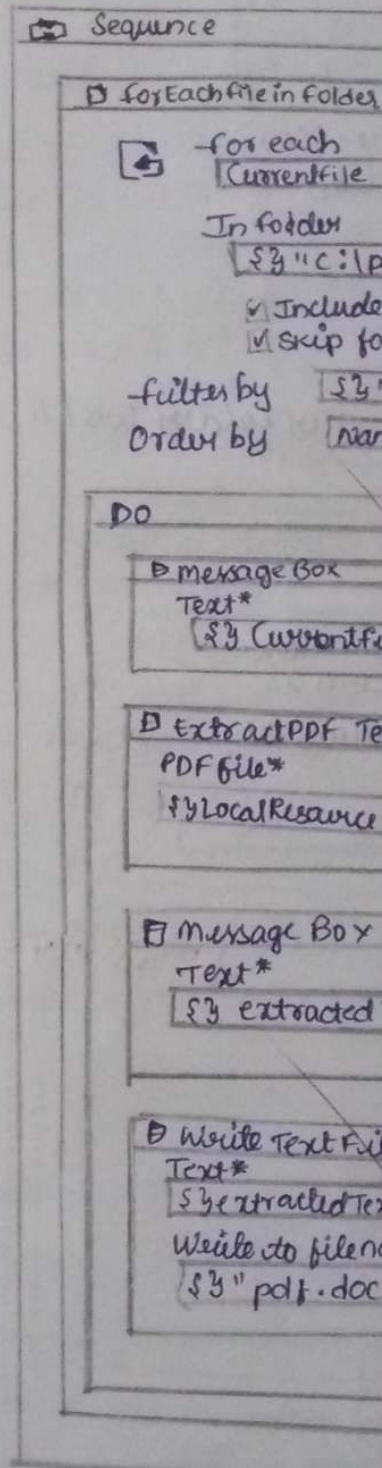 Sequence
forEach file in Folder
for each
Currentfile
In folder
{} "C:\p
Include
Skip fo
filter by {} "
Order by Nam
DO
Message Box
Text*
{} Currentfi
Extract PDF Te
PDF file*
{} LocalResource
Message Box
Text*
{} extracted
Write Text Fil
Text*
{} extractedTex
Write to filena
{} "pdf.doc